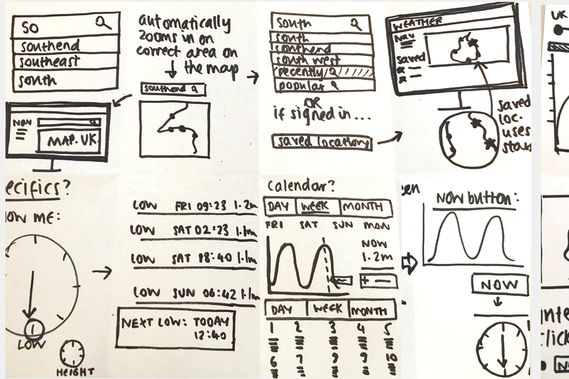 so
southend
southeast
south
NAV
MAP·UK
automatically
zooms in on
correct area on
the map
southend
south
south
southend
south west
recently
popular
OR
if signed in...
saved locations
WEATHER
NAV
saved
saved
loc
uses
UK
specifics?
LOW
HEIGHT
LOW FRI 09:23
LOW SAT 02:23 1.1m
LOW SAT 18:40 1.1m
LOW SUN 06:42 1.1m
NEXT LOW: TODAY
12:40
Calendar?
DAY WEEK MONTH
FRI SAT SUN MON
NOW
1.2m
DAY WEEK MONTH
1 2 3 4 5
6 7 8 9 10
NOW button:
NOW